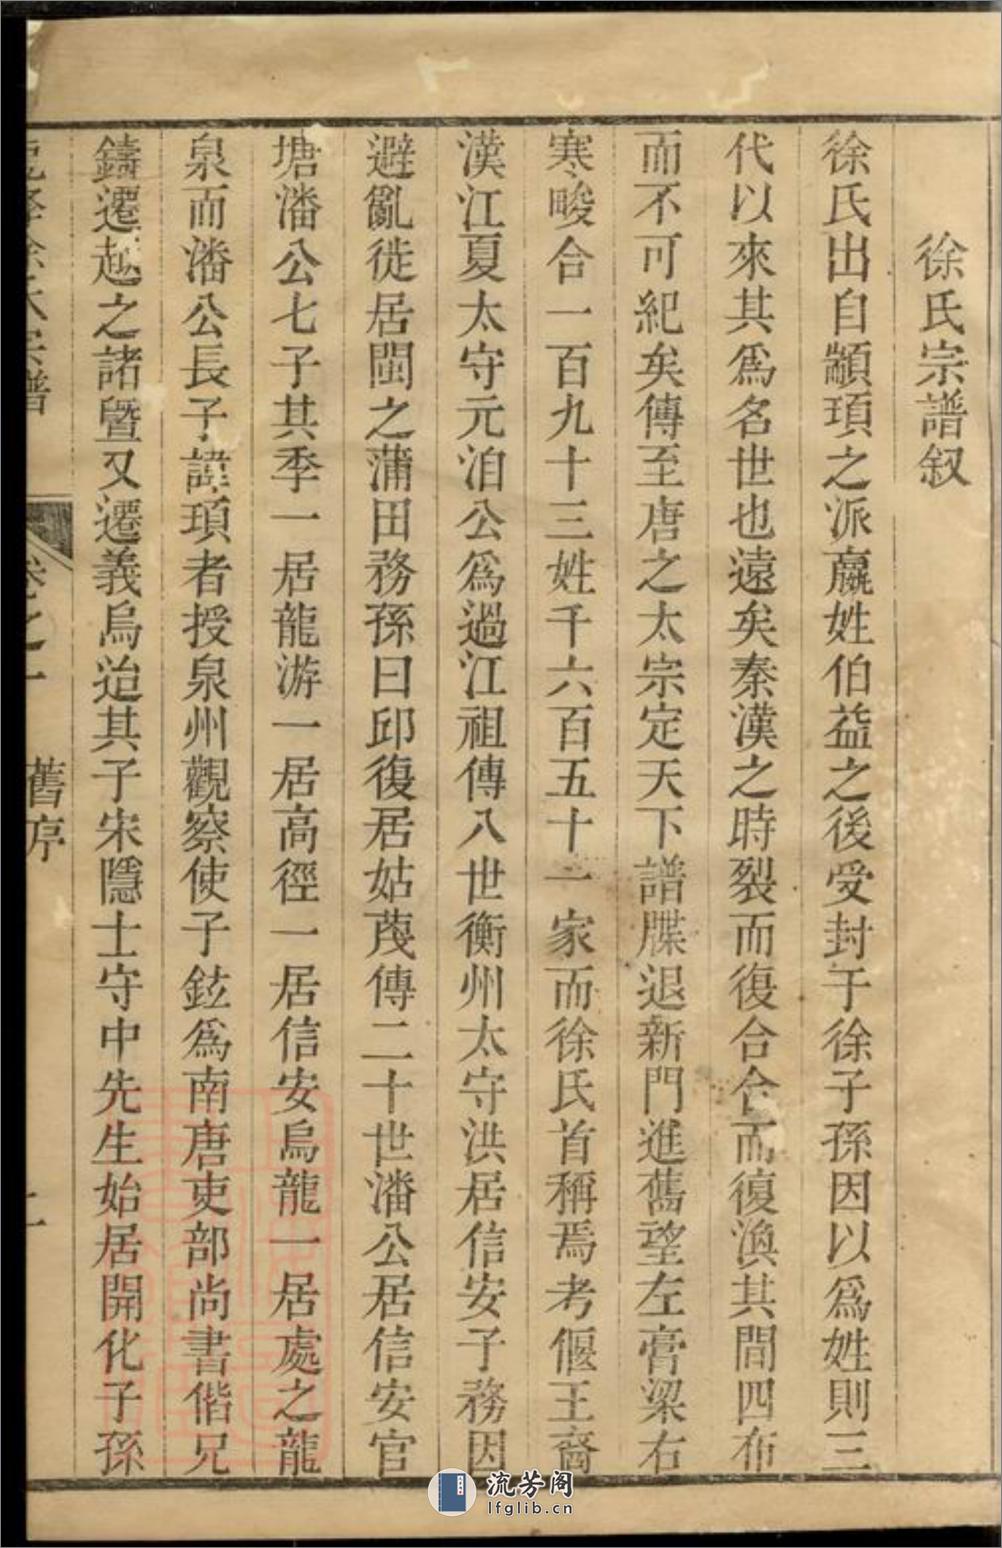 徐氏宗譜叙
徐氏出自顓頊之派嬴姓伯益之後受封于徐子孫因以爲姓則三
代以來其爲名世也遠矣秦漢之時裂而復合合而復渙其間四布
而不可紀矣傳至唐之太宗定天下譜牒退新門進舊望左膏梁右
寒畯合一百九十三姓千六百五十一家而徐氏首稱焉考偃王裔
漢江夏太守元洎公爲過江祖傳八世衡州太守洪居信安子務因
避亂徙居閩之蒲田務孫曰邱復居姑蔑傳二十世潘公居信安官
塘潘公七子其季一居龍游一居高徑一居信安烏龍一居處之龍
泉而潘公長子諱頊者授泉州觀察使子鉉爲南唐吏部尚書偕兄
鑄遷越之諸暨又遷義烏迨其子宋隱士守中先生始居開化子孫
徐氏宗譜
卷之一
舊序
流芳阁
lfglib.cn